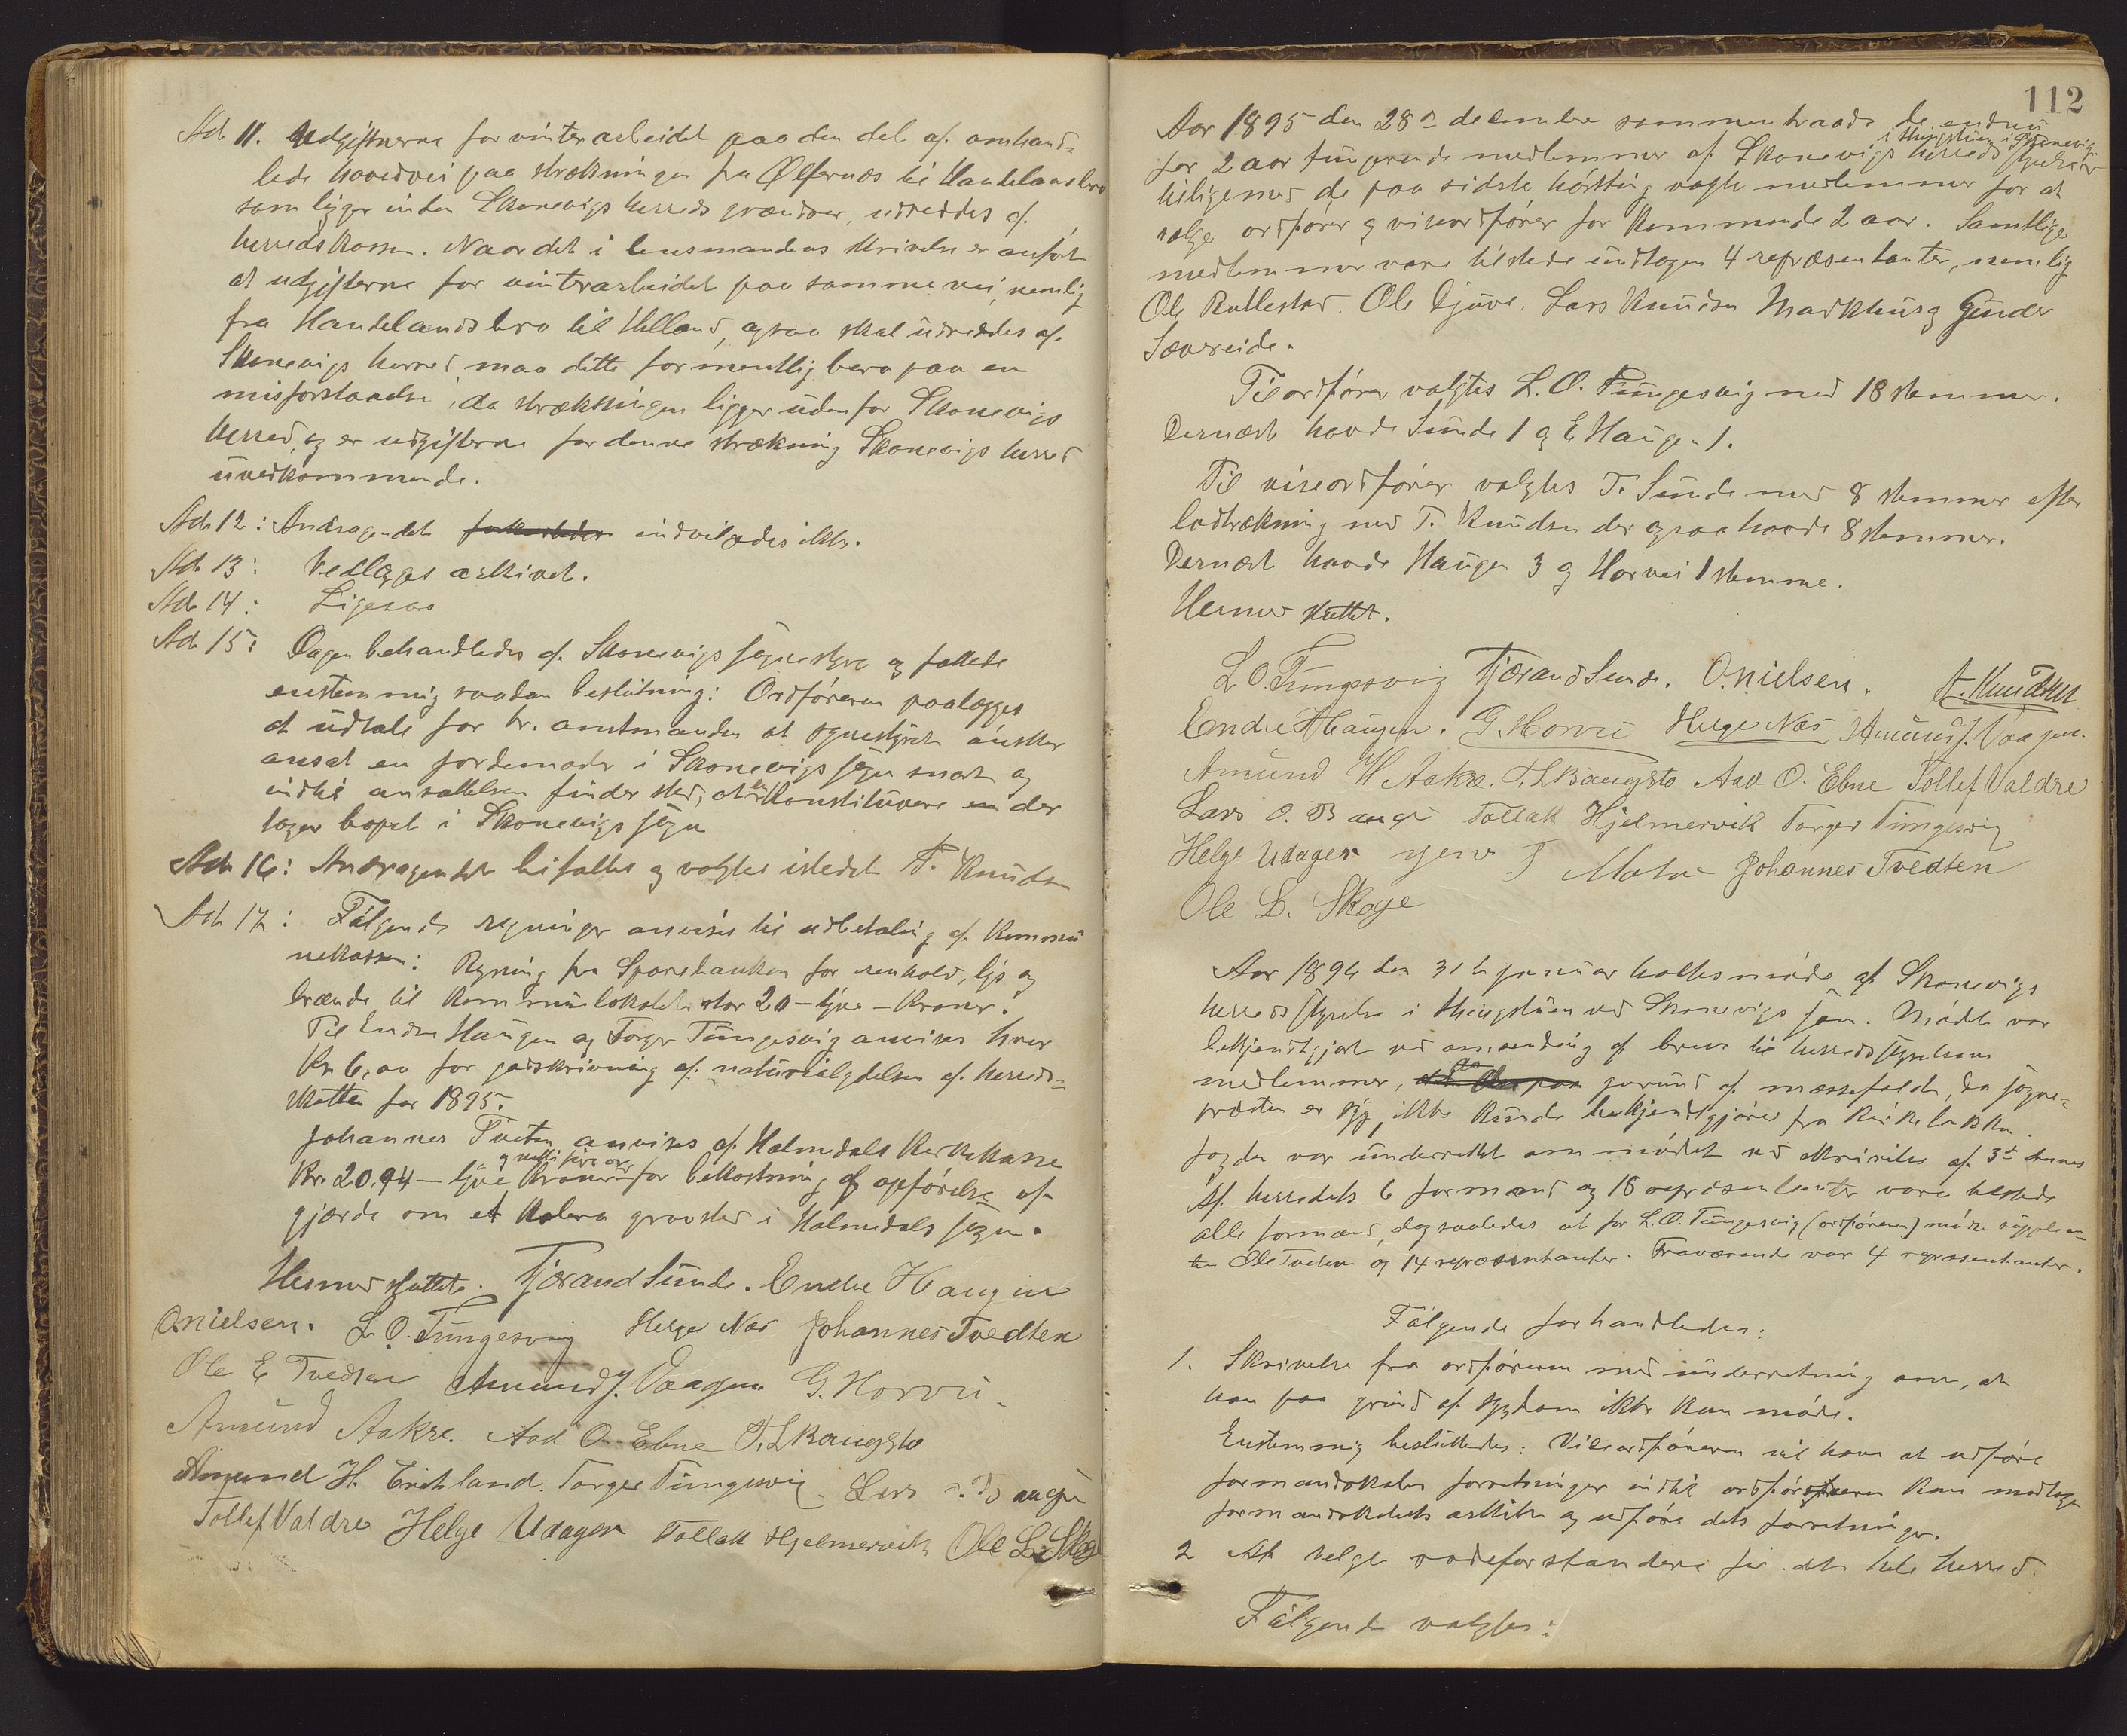 Ad 11. Udgifterne for vinterarbeidet paa den del af omhand=
lede hovedvei paa strækningen fra Ølfernæs til Handelandsbro
som ligger inden Skonevigs herreds grændser, udreddes af
herredskassen. Naar det i lensmandens skrivelse er anført
at udgifterne for vinterarbeidet paa samme vei, nemlig
fra Handelandsbro til Helland, ogsaa skal udreddes af
Skonevigs herred, maa dette formentlig bero paa en
misforstaaelse, da strækningen ligger udenfor Skonevigs
herred, og er udgifterne for denne strækning Skonevigs herred
uvedkommende.
Ad 12: Andragendet indvilgedes ikke.
Ad 13: Vedlægges arkivet.
Ad 14: Ligesaa
Ad 15: Sagen behandledes af Skonevigs sognestyre og fattede
enstemmig saadan beslutning: Ordføreren paalægges
at udtale for hr. amtmanden at sognestyret ønsker
ansat en jordemoder i Skonevigs sogn snart og
indtil ansættelsen finder sted, at konstituere en der
tager bopæl i Skonevigs sogn
Ad 16: Andragendet bifaltes og valgtes istedet T. Knudsen
Ad 17: Følgende regninger anvises til udbetaling af Kommu
nekassen: Regning fra Sparebanken for renhold, lys og
brænde til kommunelokalet stor 20 - tyve - Kroner.
Til Endre Haugen og Torger Tungesvig anvises hver
Kr. 6,00 for gadskrivning af naturalydelsen af herreds=
skatten for 1895.
Johannes Tveten anvises af Holmedals Kirkekasse
og nitti fire øre
Kr. 20.94 - tyve Kroner for bekostning af opførelse af
gjærde om et kolera gravsted i Holmedals sogn.
Hermed sluttet. Tjærand Sunde. Endre Haugen
O. Nielsen. L. O. Tungesvig Helge Næs Johannes Tvedten
Ole E Tvedten Amund J. Vaagen G. Horvei.
Amund Aakre. Aad O. Ebne T. L. Baugsto
Amund H. Erichland. Torger Tungesvig. Lars O. Bauge
Tollef Valdre Helge Udager Tollak Hjelmervik Ole L. Skoge
112
Aar 1895 den 28de december sammentraade de endnu
i thingstuen i Skonevig
for 2 aar fungerende medlemmer af Skonevigs herredsstyrelse
tilligemed de paa sidste høstting valgte medlemmer for at
vælge ordfører og viseordfører for kommende 2 aar. Samtlige
medlemmer vare tilstede undtagen 4 repræsentanter, nemlig
Ole Rullestad. Ole Djuve. Lars Knudsen Markhus og Gunder
Sævreide.
Til ordfører valgtes L. O. Tungesvig med 18 stemmer.
Dernæst havde Sunde 1 og E Haugen 1.
Til viseordfører valgtes T. Sunde med 8 stemmer efter
lodtrækning med T. Knudsen der ogsaa havde 8 stemmer.
Dernæst havde Haugen 3 og Horvei 1 stemme.
Hermed sluttet.
L O. Tungesvig Tjærand Sunde. O. Nielsen. T. Knudsen
Endre Haugen. G. Horvei Helge Næs Amund J. Vaagen.
Amund H. Aakre. T. L Baugsto Aad O. Ebne Tollef Valdre
Lars O. Bauge Tollak Hjelmervik Torger Tungesvig
Helge Udager Jens T Matre Johannes Tvedten
Ole L. Skoge
Aar 1896 den 31te januar holtes møde af Skonevigs
herredsstyrelse i thingstuen ved Skonevigs søen. Mødet var
bekjendtgjort ved omsending af breve til herredsstyrelsens
medlemmer, da grund af messefald, da sogne=
præsten er syg, ikke kunde bekjendtgjøres fra kirkebakken.
Fogden var underrettet om mødet ved skrivelse af 3de dennes
Af herredets 6 formænd og 18 repræsentanter vare tilstede
alle formænd, dog saaledes at for L. O. Tungesvig (ordføreren) mødte supplean=
ten Ole Tveten og 14 repræsentanter. Fraværende var 4 repræsentanter.
Følgende forhandledes:
1. Skrivelse fra ordføreren med underretning om, at
han paa grund af sygdom ikke kan møde.
Enstemmig besluttedes: Viseordføreren vil have at udføre
formandskabets forretninger indtil ordføreren kan modtage
formandskabets arkiv og udføre dets forretninger.
2 At velge rodeforstandere for det hele herred.
Følgende valgtes: